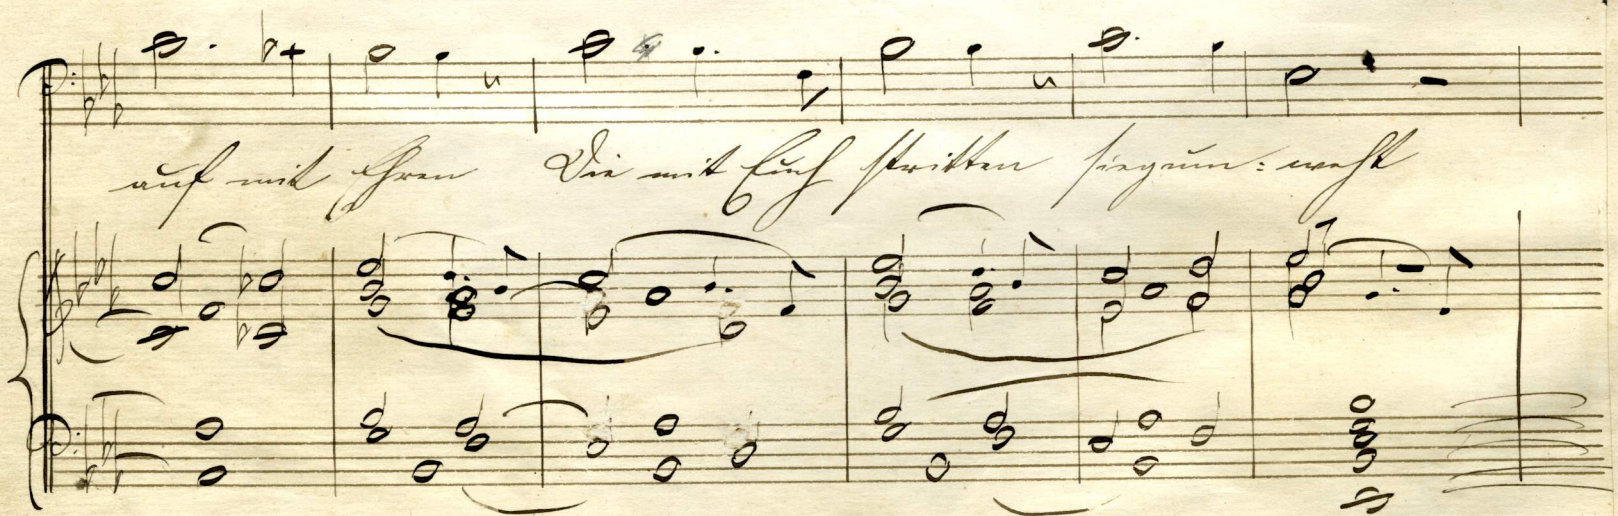 auf mit Ehren Die mit Euch stritten siegum: weht